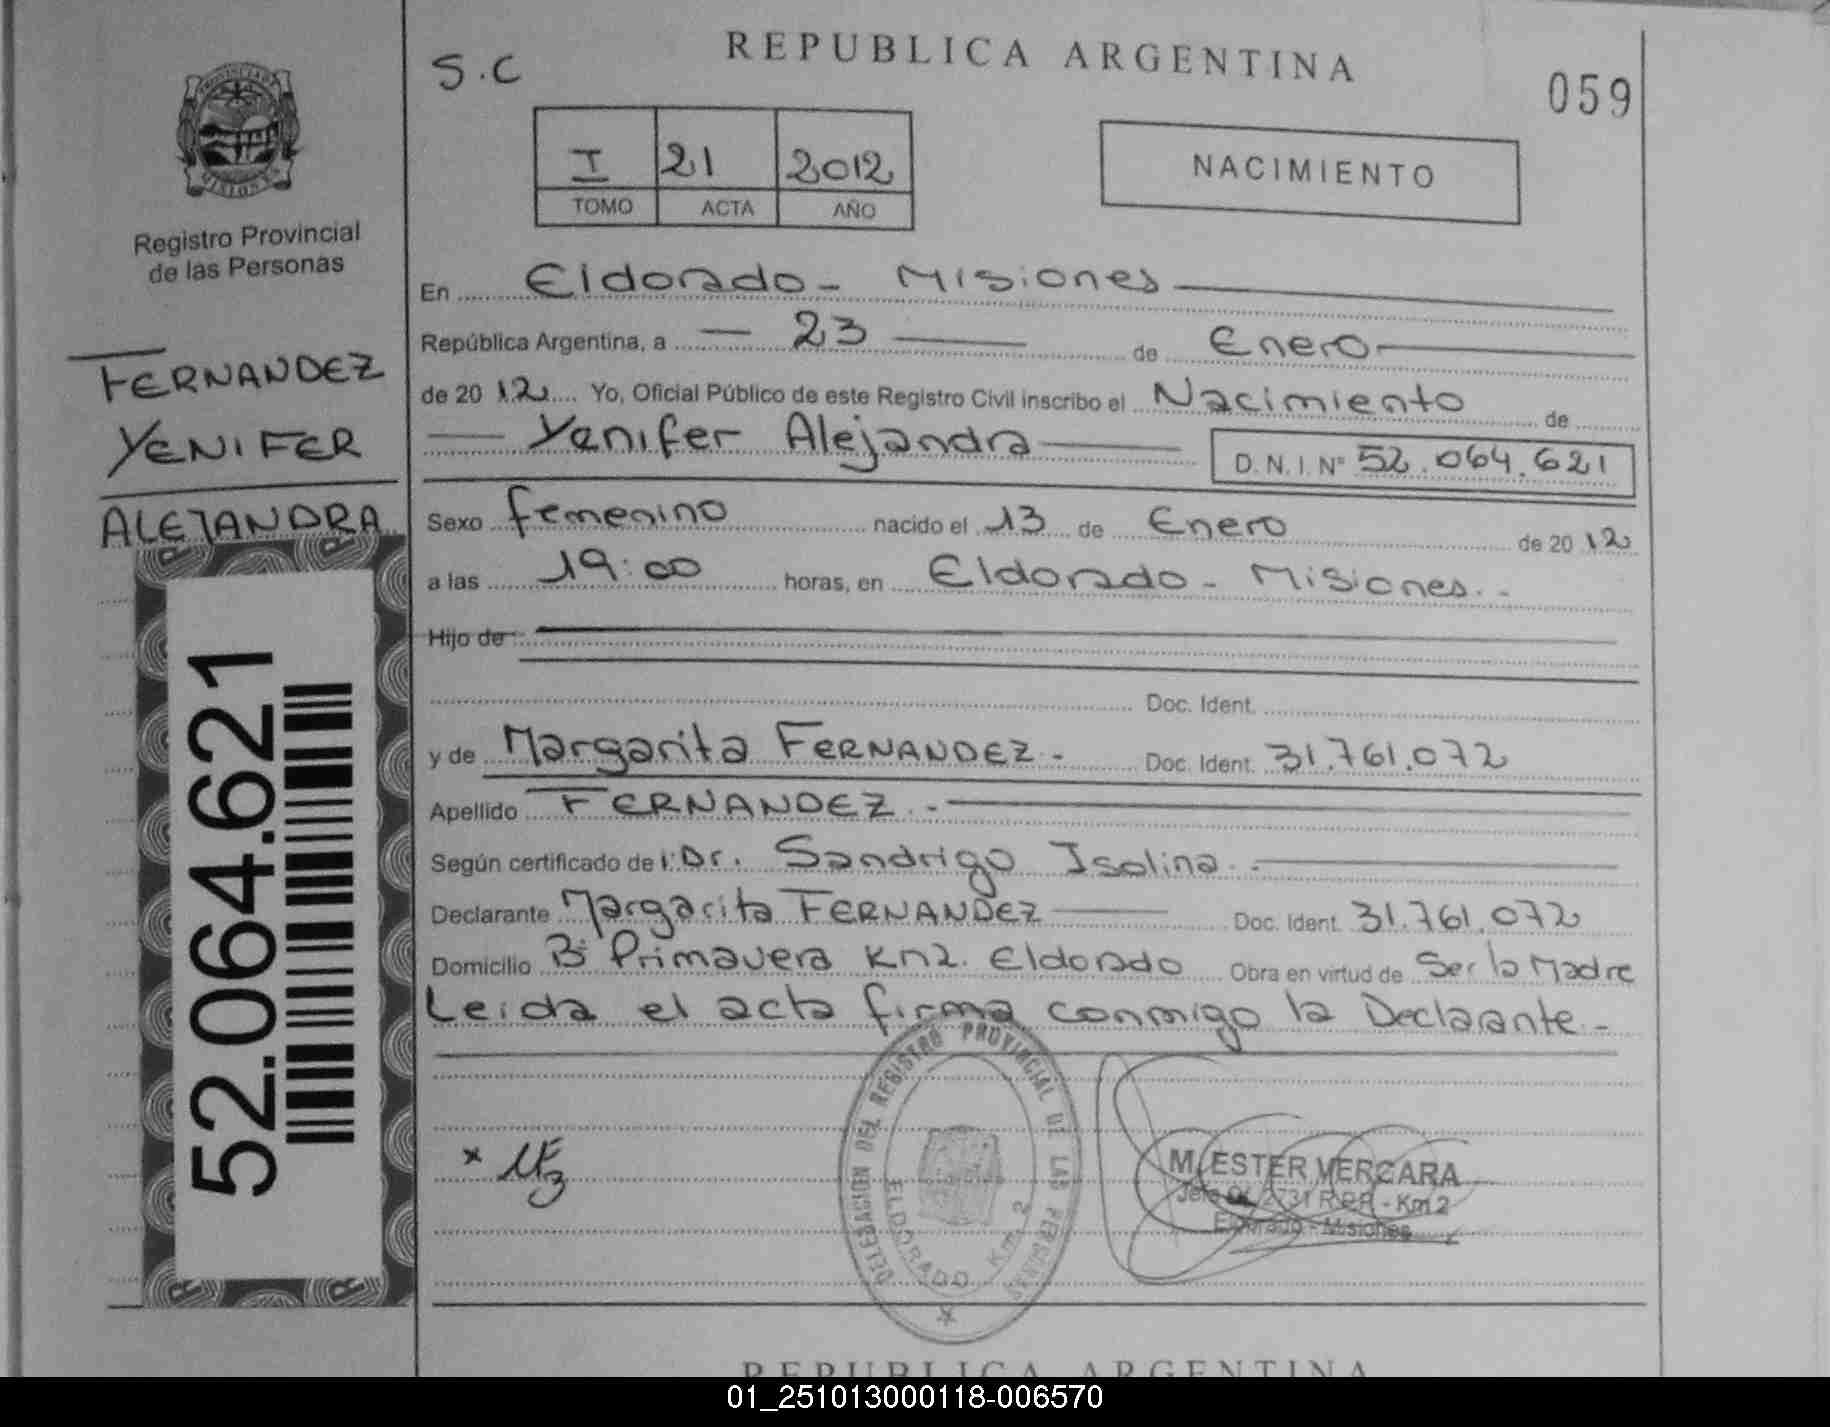 S.C
REPUBLICA ARGENTINA
059
I 21 2012
TOMO ACTA AÑO
NACIMIENTO
MISIONES
Registro Provincial
de las Personas
FERNANDEZ
YENIFER
ALEJANDRA
52.064.621
En Eldorado - Misiones
República Argentina, a 23 de Enero
de 2012 Yo, Oficial Público de este Registro Civil inscribo el Nacimiento de
Yenifer Alejandra D.N.I. Nº 52.064.621
Sexo femenino nacido el 13 de Enero de 2012
a las 19:00 horas, en Eldorado - Misiones.-
Hijo de
Doc. Ident.
y de Margarita FERNANDEZ.- Doc. Ident. 31.761.072
Apellido FERNANDEZ.-
Según certificado de: Dr. Sandrigo Isolina.-
Declarante Margarita FERNANDEZ Doc. Ident. 31.761.072
Domicilio Bº Primavera Km2. Eldorado Obra en virtud de Ser la Madre
Leida el acta firma conmigo la Declarante.-
DELEGACION DEL REGISTRO PROVINCIAL DE LAS PERSONAS
ELDORADO Km 2
M. ESTER VERGARA
Jefe Of. 2731 R.P.P. - Km 2
Eldorado - Misiones
REPUBLICA ARGENTINA
01_251013000118-006570